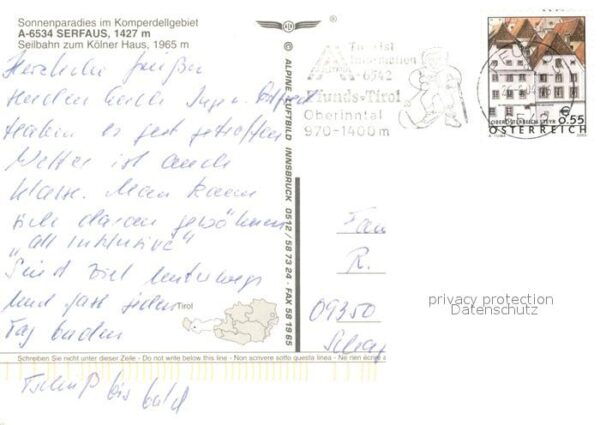 Sonnenparadies im Komperdellgebiet
A-6534 SERFAUS, 1427 m
Seilbahn zum Kölner Haus, 1965 m
Herzliche Grüße
haben es gut getroffen
Wetter ist auch
klasse. Man kann
sich daran gewöhnen
„all inklusive"
Sind viel unterwegs
und fast jeden
Tag baden
Tschüß bis bald
Tirol
Schreiben Sie nicht unter dieser Zeile - Do not write below this line - Non scrivere sotto questa linea - Ne rien écri
© ALPINE LUFTBILD INNSBRUCK 0512/58 73 24 - FAX 58 19 65
Tourist
Information
A-6542
Pfunds-Tirol
Oberinntal
970-1400m
OBERÖSTERREICH STEYR
€ 0.55
ÖSTERREICH
Fam
R.
09350
privacy protection
Datenschutz